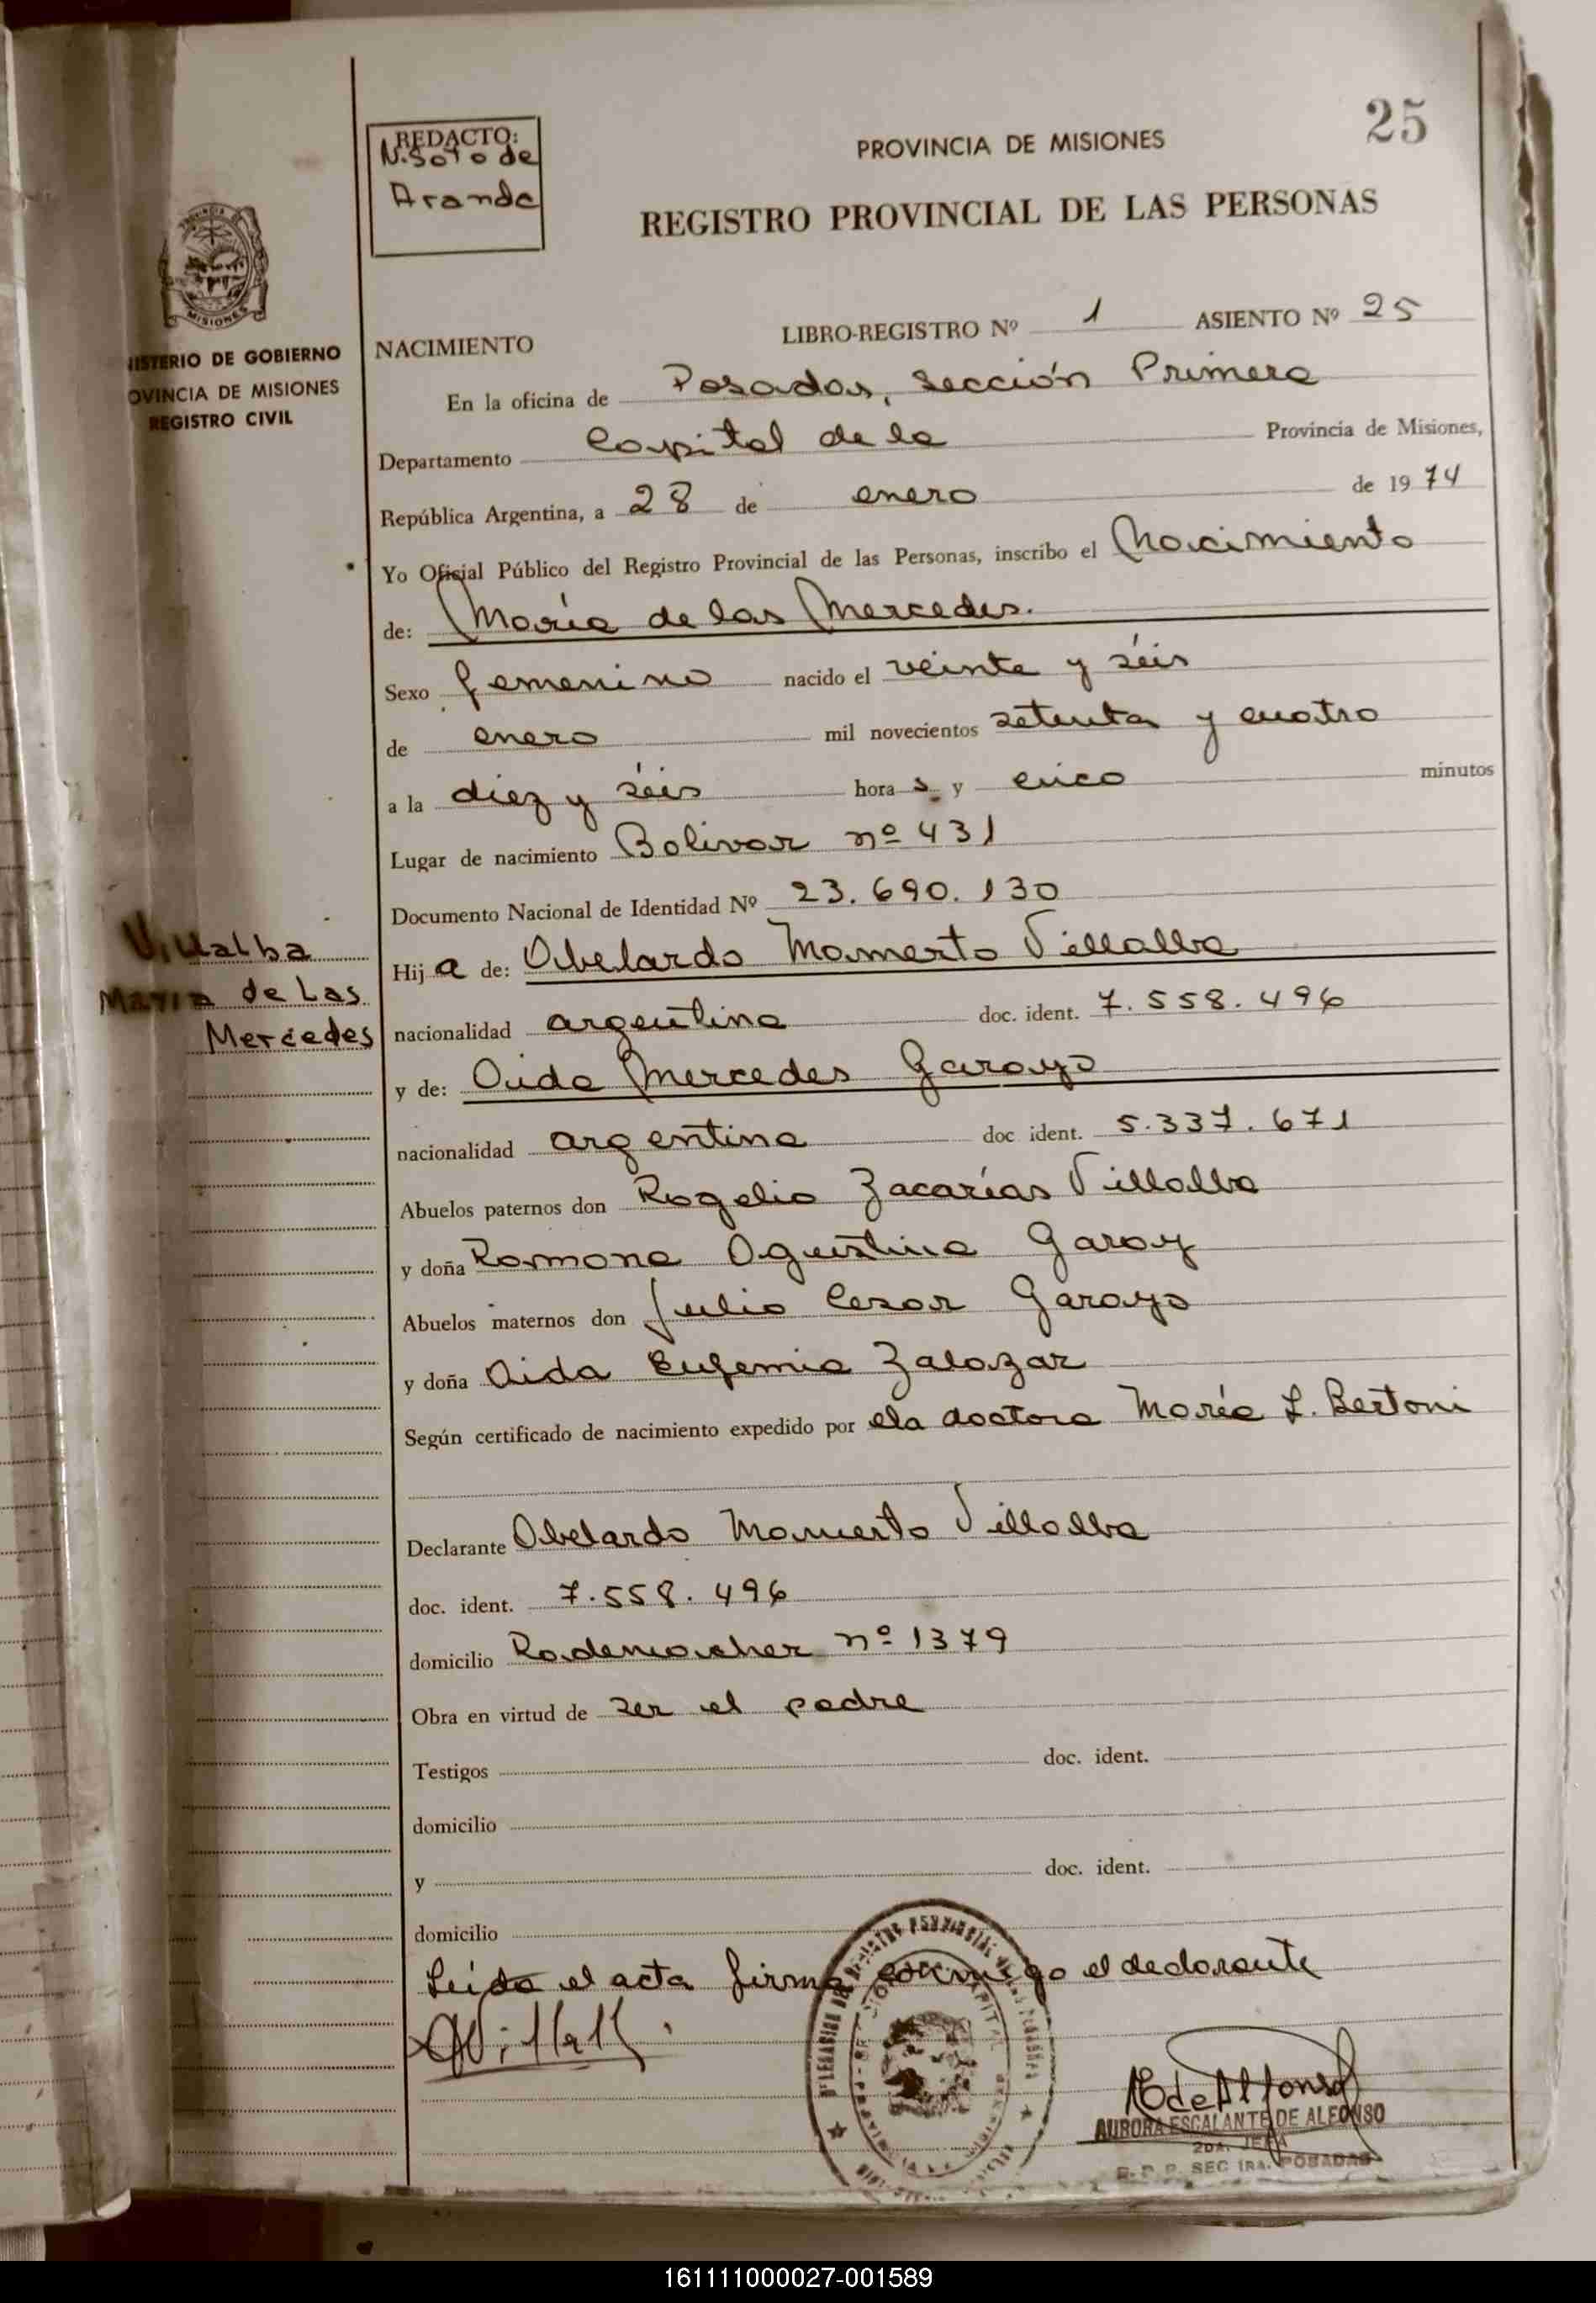 25
REDACTO:
N. Soto de
Aranda
PROVINCIA DE MISIONES
REGISTRO PROVINCIAL DE LAS PERSONAS
MISIONES
NISTERIO DE GOBIERNO
OVINCIA DE MISIONES
REGISTRO CIVIL
NACIMIENTO
LIBRO-REGISTRO Nº 1 ASIENTO Nº 25
En la oficina de Posadas, Sección Primera
Departamento Capital de la Provincia de Misiones,
República Argentina, a 28 de enero de 1974
Yo Oficial Público del Registro Provincial de las Personas, inscribo el Nacimiento
de: María de las Mercedes.
Sexo femenino nacido el veinte y séis
de enero mil novecientos setenta y cuatro
a la diez y séis hora s y cinco minutos
Lugar de nacimiento Bolivar nº 431
Documento Nacional de Identidad Nº 23.690.130
Villalba
Maria de Las
Mercedes
Hij a de: Abelardo Mamerto Villalba
nacionalidad argentina doc. ident. 7.558.496
y de: Aida Mercedes Garayo
nacionalidad argentina doc ident. 5.337.671
Abuelos paternos don Rogelio Zacarías Villalba
y doña Ramona Agustina Garay
Abuelos maternos don Julio Cesar Garayo
y doña Aida Eufemia Zalazar
Según certificado de nacimiento expedido por la doctora María L. Bertoni
Declarante Abelardo Mamerto Villalba
doc. ident. 7.558.496
domicilio Rademacher nº 1379
Obra en virtud de ser el padre
Testigos doc. ident.
domicilio
y doc. ident.
domicilio
Leída el acta firma conmigo el declarante
AURORA ESCALANTE DE ALFONSO
2DA. JEFA
R. P. P. SEC 1RA. POSADAS
161111000027-001589